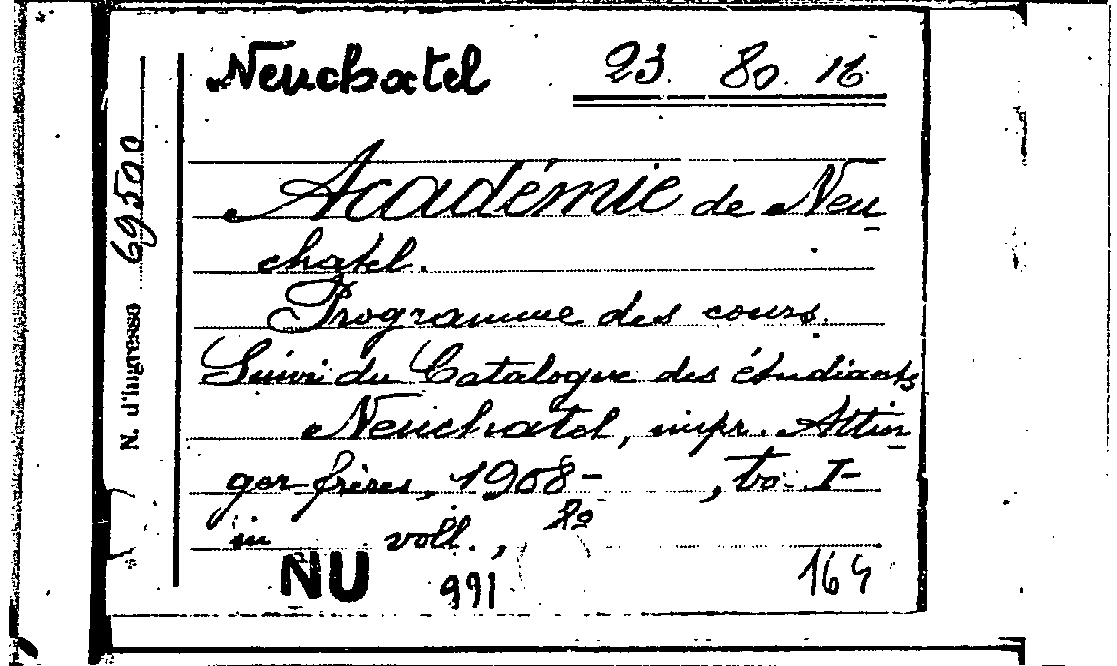 Neuchatel 23. 80. 16
N. d'Ingresso 69500
Académie de Neu
chatel.
Programme des cours.
Suivi du Catalogue des étudiants
Neuchatel, impr. Attin
ger frères, 1908- , to. I-
in voll., 8º
NU 991 164